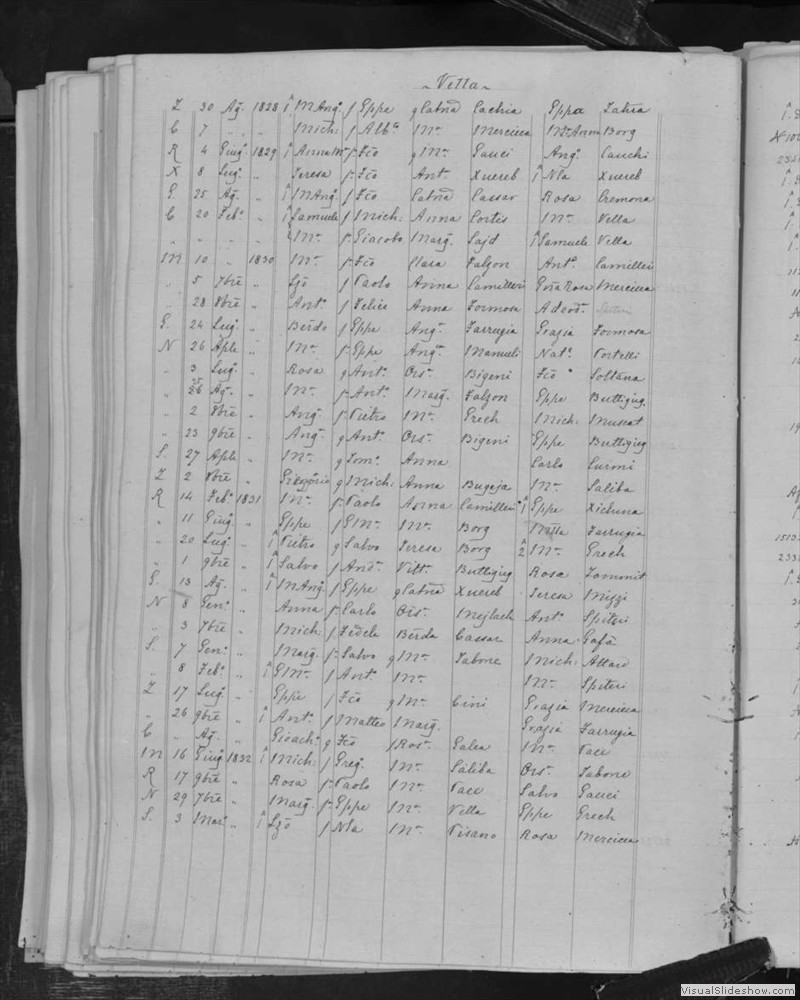 ~ Vella ~
Z 30 Ag. 1828 1 MAng. f Gppe q Catna Cachia Gppa Zahra
C 7 " " Mich: f Alb. Ma. Mercieca Borg
R 4 Giug. 1829 1 AnnaMa. f. Fco q Ma. Gauci Ang. Cauchi
X 8 Lug. " Teresa f. Fco Ant. Xuereb 1 Nla Xuereb
G. 25 Ag. " 1 MAng. f Fco Catna Cassar Rosa Cremona
C 20 Feb. " 1 Samuele f Mich: Anna Cortis Ma. Vella
" " " " Ma. f. Giacobo Marg. Sajd 1 Samuele Vella
M 10 " 1830 Ma. f. Fco Clara Falzon Ant. Camilleri
" 5 7bre " Lzo f Paolo Anna Camilleri Rosa Mercieca
" 28 8bre " Ant. f Felice Anna Formosa Adeod.
G. 24 Lug. " Berdo f Gppe Ang. Farrugia Grazia Formosa
N 26 Aple " Ma. f. Gppe Ang. Mamuli Nat. Portelli
" 3 Lug. " Rosa q Ant. Ors. Bigeni Fco Soltana
" Ag. " Ma. f. Ant. Marg. Falzon Gppe Buttigieg
" 2 8bre " Ang. f. Pietro Ma. Grech Mich: Muscat
" 23 9bre " Ang. q Ant. Ors. Bigeni Gppe Buttigieg
S. 27 Aple " Ma. q Tom. Anna Carlo Curmi
Z 2 8bre " Gregorio q Mich: Anna Bugeja Ma. Saliba
R 14 Feb. 1831 Ma. f. Paolo Anna Camilleri 1 Gppe Xichuna
" 11 Giug. " Gppe f GMa. Ma. Borg Farrugia
" 20 Lug. " 1 Pietro q Salvo Teresa Borg 2 Ma. Grech
" 1 9bre " 1 Salvo f And. Vitt. Buttigieg Rosa Zammit
G. 13 Ag. " 1 MAng. f Gppe q Catna Xuereb Teresa Mizzi
N 8 Gen. " Anna f. Carlo Ors. Mejlach Ant. Spiteri
" 3 7bre " Mich: f Fedele Berda Cassar Anna Gafà
S. 7 Gen. " Marg. f. Salvo q Ma. Tabone Mich: Attard
" 8 Feb. " 1 GMa. f Ant. Ma. Ma. Spiteri
Z 17 Lug. " Gppe f Fco q Ma. Cini Grazia Mercieca
" 26 9bre " 1 Ant. f Matteo Marg. Grazia Farrugia
C " Ag. " Gioach. q Fco f Ros. Galea Ma. Pace
M 16 Giug. 1832 1 Mich: f Greg. Ma. Saliba Ors. Tabone
R 17 9bre " Rosa f. Paolo Ma. Pace Salvo Gauci
N 29 7bre " Marg. f. Gppe Ma. Vella Gppe Grech
S. 3 Mar. " 1 Lzo f Nla Ma. Pisano Rosa Mercieca
VisualSlideshow.com